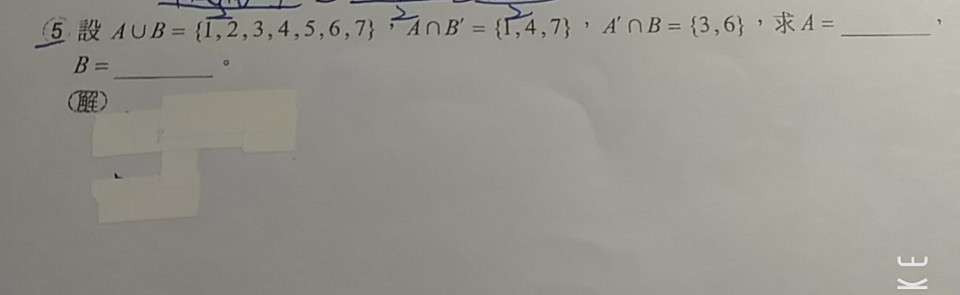 5 設 A∪B = {1,2,3,4,5,6,7},A∩B′ = {1,4,7},A′∩B = {3,6},求 A = ________,
B = ________。
解
KE